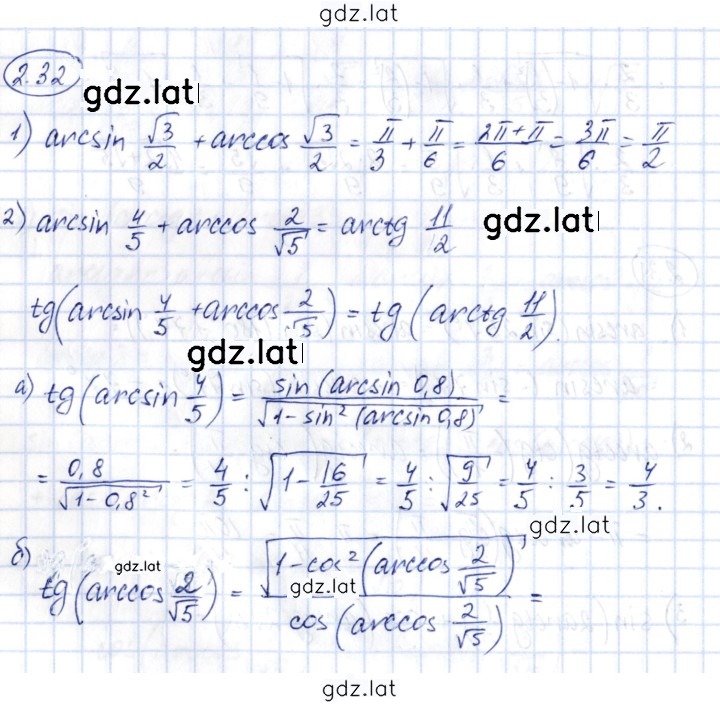 gdz.lat
2.32
gdz.lat
1) arcsin √3/2 + arccos √3/2 = π/3 + π/6 = (2π+π)/6 = 3π/6 = π/2
2) arcsin 4/5 + arccos 2/√5 = arctg 11/2
gdz.lat
tg(arcsin 4/5 + arccos 2/√5) = tg(arctg 11/2).
gdz.lat
а) tg(arcsin 4/5) = sin(arcsin 0,8)/√(1-sin²(arcsin 0,8)) =
= 0,8/√(1-0,8²) = 4/5 : √(1-16/25) = 4/5 : √(9/25) = 4/5 : 3/5 = 4/3.
gdz.lat
б) tg(arccos 2/√5) = √(1-cos²(arccos 2/√5))/cos(arccos 2/√5) =
gdz.lat
gdz.lat
gdz.lat